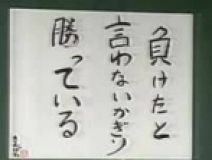 負けたと
言わないかぎり
勝っている